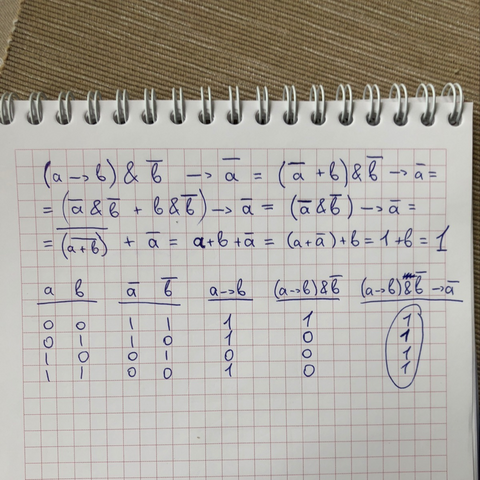 (a → b) & b̅ → a̅ = (a̅ + b) & b̅ → a̅ =
= (a̅ & b̅ + b & b̅) → a̅ = (a̅ & b̅) → a̅ =
= \overline{\overline{(a+b)}} + a̅ = a + b + a̅ = (a + a̅) + b = 1 + b = 1
a b a̅ b̅ a→b (a→b)&b̅ (a→b)&b̅ → a̅
0 0 1 1 1 1 1
0 1 1 0 1 0 1
1 0 0 1 0 0 1
1 1 0 0 1 0 1